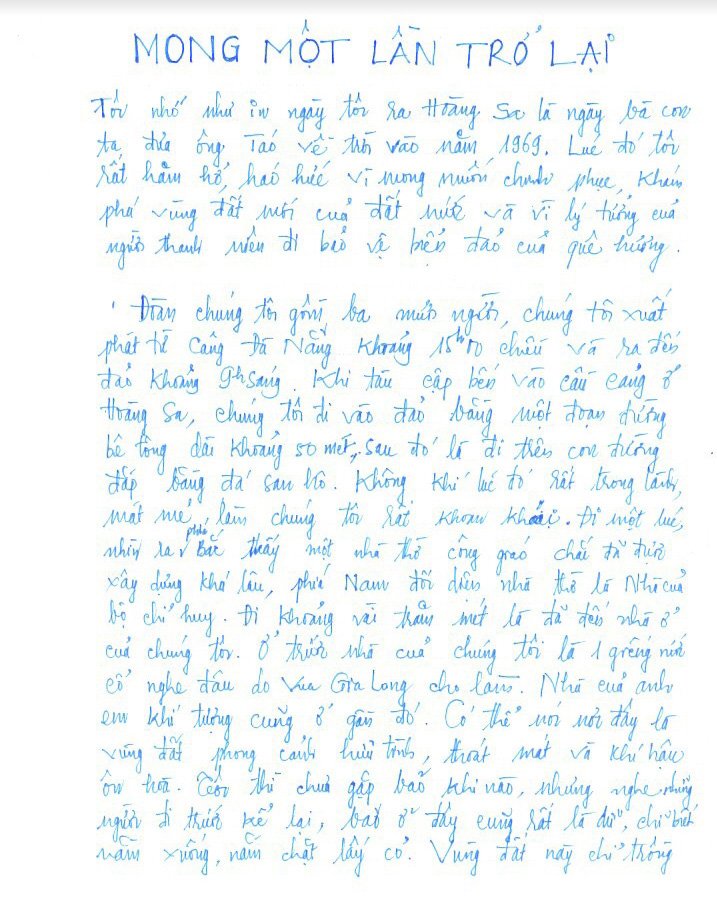 MONG MỘT LẦN TRỞ LẠI
Tôi nhớ như in ngày tôi ra Hoàng Sa là ngày bà con
ta đưa ông Táo về trời vào năm 1969. Lúc đó tôi
rất hăm hở, háo hức vì mong muốn chinh phục, khám
phá vùng đất mới của đất nước và vì lý tưởng của
người thanh niên đi bảo vệ biển đảo của quê hương.
Đoàn chúng tôi gồm ba mươi người, chúng tôi xuất
phát từ Cảng Đà Nẵng khoảng 15h00 chiều và ra đến
đảo khoảng 9h sáng. Khi tàu cập bến vào cầu cảng ở
Hoàng Sa, chúng tôi đi vào đảo bằng một đoạn đường
bê tông dài khoảng 50 mét, sau đó là đi trên con đường
đắp bằng đá san hô. Không khí lúc đó rất trong lành,
mát mẻ, làm chúng tôi rất khoan khoái. Đi một lúc,
nhìn ra phía Bắc thấy một nhà thờ công giáo chắc đã được
xây dựng khá lâu, phía Nam đối diện nhà thờ là Nhà của
bộ chỉ huy. Đi khoảng vài trăm mét là đã đến nhà ở
của chúng tôi. Ở trước nhà của chúng tôi là 1 giếng nước
cổ nghe đâu do Vua Gia Long cho làm. Nhà của anh
em khí tượng cũng ở gần đó. Có thể nói nơi đây là
vùng đất phong cảnh hữu tình, thoát mát và khí hậu
ôn hoà. Tôi thì chưa gặp bão khi nào, nhưng nghe những
người đi trước kể lại, bão ở đây cũng rất là dữ, chỉ biết
nằm xuống, nắm chặt lấy cỏ. Vùng đất này chỉ trồng